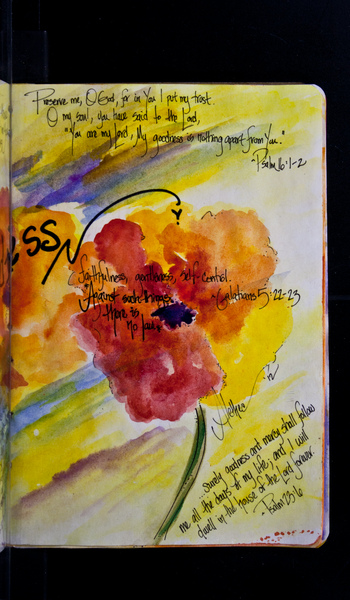 Preserve me, O God, for in You I put my trust.
O my soul, you have said to the Lord,
"You are my Lord, My goodness is nothing apart from You."
~Psalm 16:1-2
SS
Y
faithfulness, gentleness, self-control.
Against such things
there is
no law.
~Galatians 5:22-23
...surely goodness and mercy shall follow
me all the days of my life; and I will
dwell in the house of the Lord forever.
~Psalm 23:6